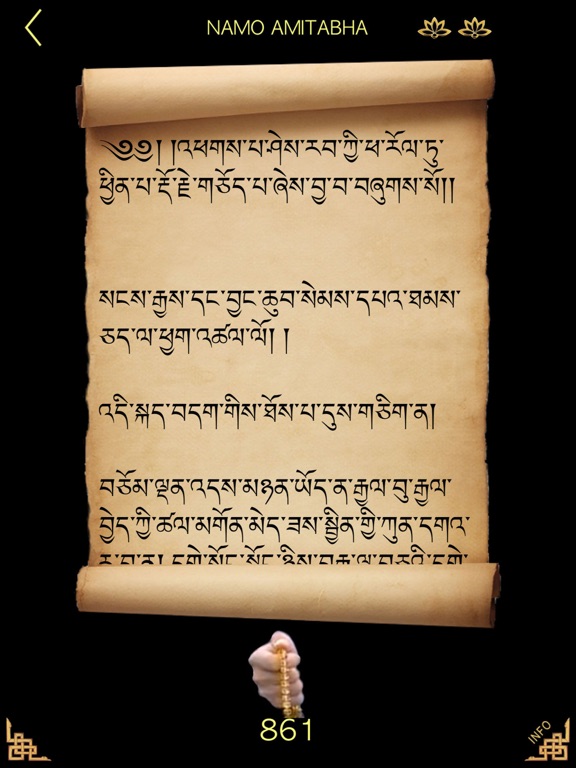 NAMO AMITABHA
༄༅། །འཕགས་པ་ཤེས་རབ་ཀྱི་ཕ་རོལ་ཏུ་
ཕྱིན་པ་རྡོ་རྗེ་གཅོད་པ་ཞེས་བྱ་བ་བཞུགས་སོ།།
སངས་རྒྱས་དང་བྱང་ཆུབ་སེམས་དཔའ་ཐམས་
ཅད་ལ་ཕྱག་འཚལ་ལོ། །
འདི་སྐད་བདག་གིས་ཐོས་པ་དུས་གཅིག་ན།
བཅོམ་ལྡན་འདས་མཉན་ཡོད་ན་རྒྱལ་བུ་རྒྱལ་
བྱེད་ཀྱི་ཚལ་མགོན་མེད་ཟས་སྦྱིན་གྱི་ཀུན་དགའ་
ར་བ་ན། དགེ་སློང་སྟོང་ཉིས་བརྒྱ་ལྔ་བཅུའི་དགེ་
861
INFO